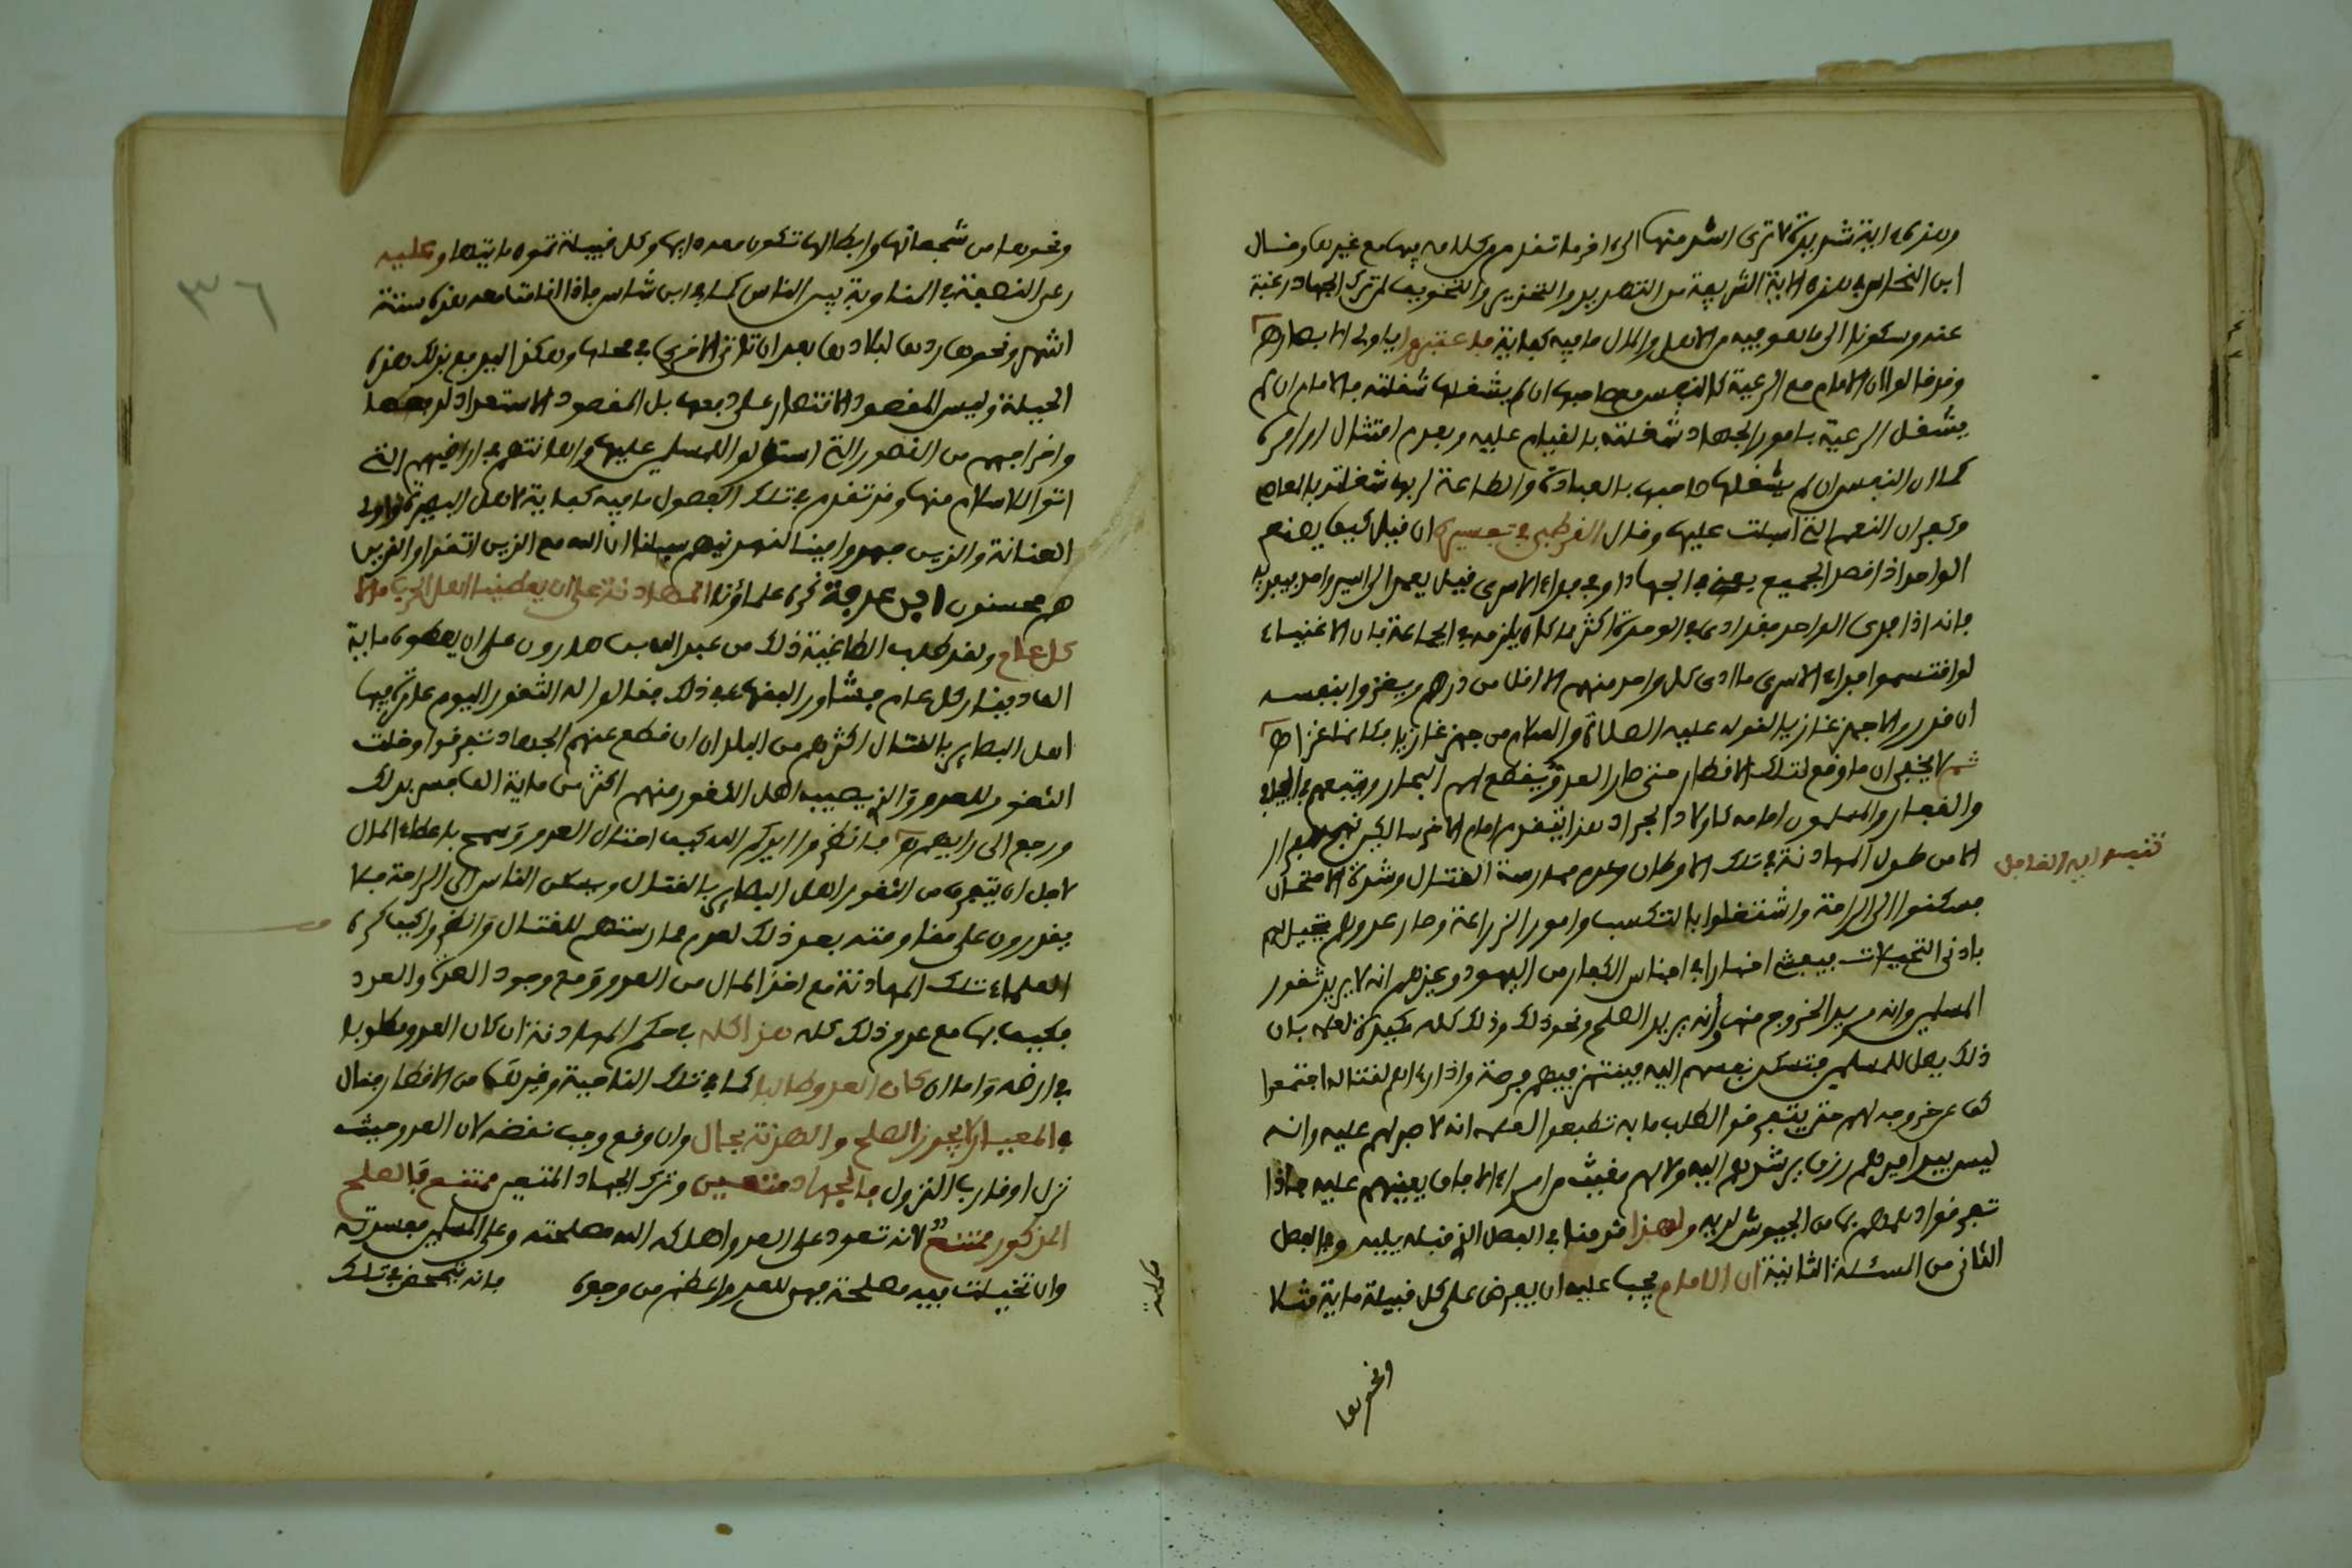 وهذه ءاية شديدة لا ترى اشد منها الى ءاخر ما تقدم من كلامه فيها مع غيرها وقال
ابن النحاس في هذه الاية الشريفة من التهديد والتحذير والتخويف لمن ترك الجهاد رغبة
عنه وسكونا الى ما هو فيه من الاهل والمال ما فيه كفاية فاعتبروا ياولى الابصار اهـ
وقد قالوا ان الامام مع الرعية كالنفس مع صاحبها ان لم يشغلها شغلته فالامام ان لم
يشغل الرعية بامور الجهاد شغلته بالقيام عليه وبعدم امتثال اوامره
كما ان النفس ان لم يشغلها صاحبها بالعبادة والطاعة لربها شغلته بالمعاصى
وكفران النعم التى اسبلت عليها وقال القرطبى في تفسيره ان قيل كيف يصنع
الواحد اذا قصر الجميع يعنى في الجهاد او في فداء الاسرى قيل يعمد الى اسير واحد فيفديه
فانه اذا فدى الواحد فقد ادى في الوحدة اكثر مما كان يلزمه في الجماعة فان الاغنياء
لو اقتسموا فداء الاسرى ما ادى كل واحد منهم الا اقل من درهم ويغزوا بنفسه
ان قدر والا جهز غازيا لقوله عليه الصلاة والسلام من جهز غازيا فكانما غزا اهـ
ثم لا يخفى ان ما وقع لتلك الاقطار حتى صار العدو يقطع لهم البحار ويتبعهم في الجبال
والقفار والمسلمون امامه كاولاد الجراد هذا يتقدم امام الاخر بالكبر نهج الفرار
الا من طول المهادنة في تلك الاوطان وعدم ممارسة القتال وشدة الامتحان
تنبيه اية الفاصل
فسكنوا الى الراحة واشتغلوا بالتكسب وامور الزراعة وصار عدوهم يتحيل لهم
بادنى التحيلات فيبعث اخبارا في اجناس الكفار من اليهود وغيرهم انه لا يريد ثغور
المسلمين وانه يريد الخروج منها وأنه يريد الصلح ونحو ذلك وذلك كله مكيدة لعلمه بان
ذلك يصل للمسلمين فتسكن نفوسهم اليه فينتهز فيهم فرصة واذا رءاهم لقتاله اجتمعوا
كف عن خروجه لهم حتى يتفرقوا لطلب ما به تطبعوا لعلمه انه لا صبر لهم عليه وانه
ليس بيد اميرهم رزق يرشدهم اليه ولا لهم مغيث من امراء الافاق يعينهم عليه فاذا
تفرقوا دهمهم بما من الجيوش لديه ولهذا قدمنا في الفصل الذى قبله يليه وفي الفصل
الثانى من المسئلة الثانية ان الامام يجب عليه ان يفرض على كل قبيلة ماية مثلا
ونحوها
ونحوها من شجعانها وابطالها تكون معه دايما وكل قبيلة تمون مايتها وعليه
رعى المصلحة في المناوبة بين الناس كما في ابن شاس فاذا اقامت معه هذه سنة
اشهر ونحوها ردها لبلادها بعد ان تاتى الاخرى في محلها وهكذا اليدفع بذلك هذه
الحيلة وليس المقصود الاقتصار على دفعها بل المقصود الاستعداد لدفعها
واخراجهم من الثغور التى استولوا للمسلمين عليها واهانتهم في اراضيهم التى
اتوا للاسلام منها وقد تقدم في تلك الفصول ما فيه كفاية لاهل البصيرة واولى
العناية والذين جهدوا فينا لنهدينهم سبلنا ان الله مع الذين اتقوا والذين
هم محسنون ابن عرفة كره علماؤنا المهادنة على ان يعطينا اهل الحرب مالا
كل عام ولقد طلب الطاغية ذلك من عبد الله بن هارون على ان يعطوه ماية
الف دينار كل عام فشاور الفقهاء في ذلك فقالوا له الثغور اليوم عامرة فيها
اهل البصائر بالقتال اكثرهم من البلدان ان قطع عنهم الجهاد تفرقوا وخلت
الثغور للعدو والذى يصيب اهل الثغور منهم اكثر من ماية الف فسر بذلك
ورجع الى رايهم اهـ فانظروا ايدكم الله كيف احتال العدو وسمح باعطاء المال
لاجل ان يتفرق من الثغور اهل البصائر بالقتال ويسكن الناس الى الراحة فلا
يقدرون على مقاومته بعد ذلك لعدم ممارستهم للقتال وانظروا كيف كره
العلماء تلك المهادنة مع اخذ المال من العدو ومع وجود العدة والعدد
فكيف بها مع عدم ذلك كله هذا كله في حكم المهادنة ان كان العدو مطلوبا
في ارضه واما ان كان العدو طالبا كما في تلك الناحية وغيرها من الاقطار فقال
في المعيار لا يجوز الصلح والهدنة بحال وان وقع وجب نقضه لان العدو حيث
نزل او قارب النزول فالجهاد متعين وترك الجهاد المتعين ممتنع فالصلح
المذكور ممتنع لانه تعود على العدو اهلكه الله مصلحته وعلى المسلمين مفسدته
وان تخيلت فيه مصلحة فهى للعدو اعظم من وجوه فانه يتحصن في تلك
٣٦